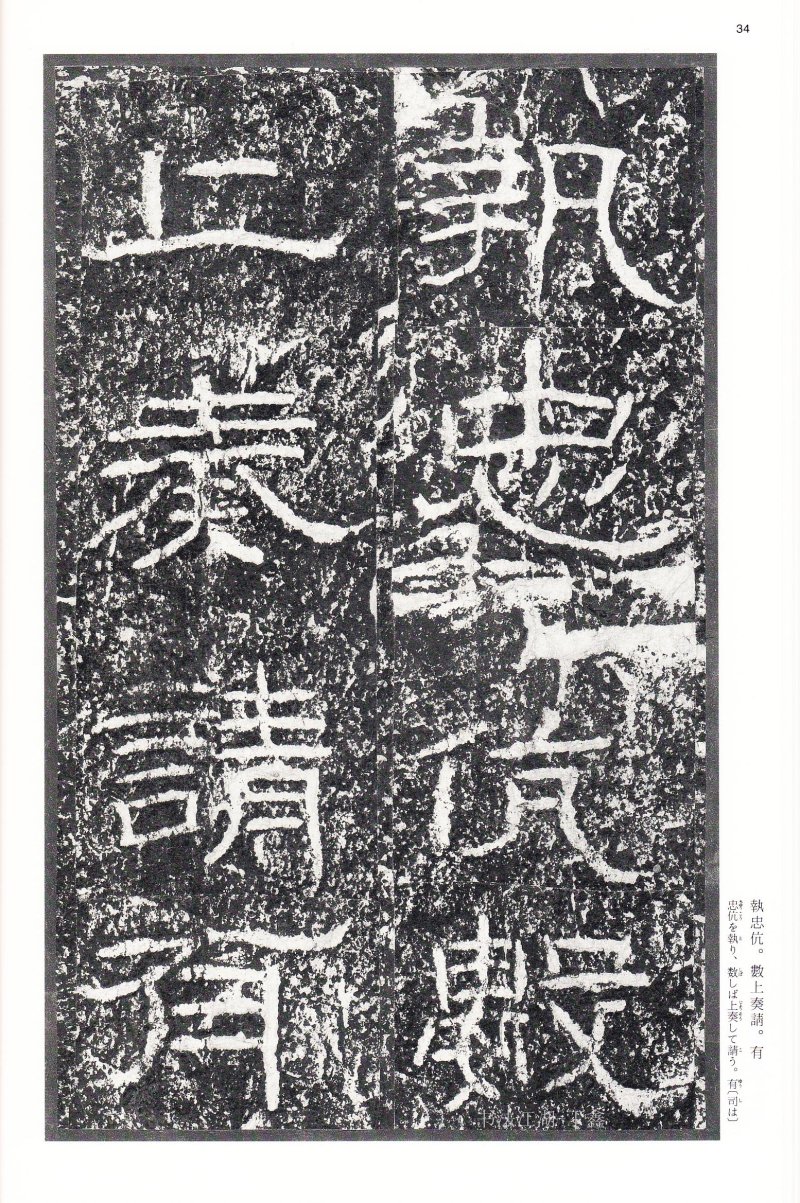 34
執忠伉數
上奏請有
執忠伉。數上奏請。有
忠伉を執り、数しば上奏して請う。有〔司は〕